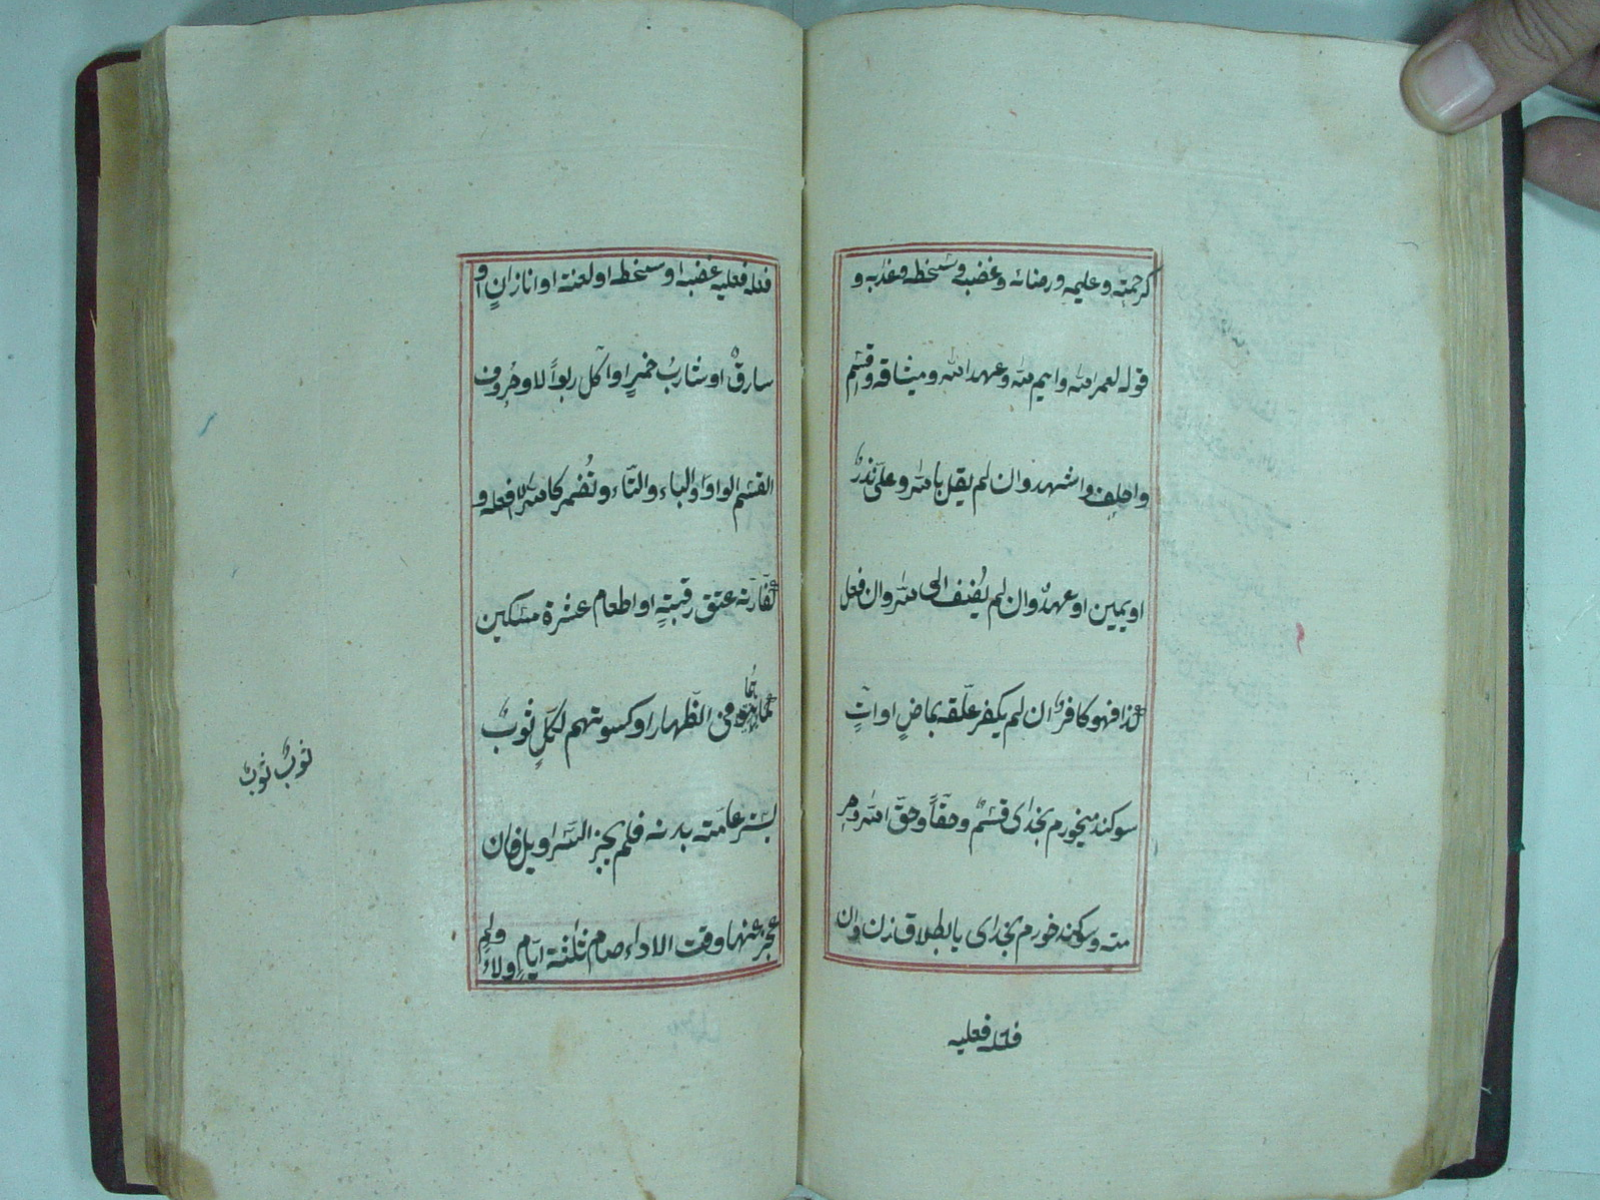 كرحمته وعلمه ورضائه وغضبه وسخطه وعذابه و
قوله لعمر الله وايم الله وعهد الله وميثاقه واقسم
واحلف واشهد وان لم يقل بالله وعلى نذر
او يمين او عهد وان لم يضف الى الله وان فعل
كذا فهو كافر ان لم يكفر علقه بماض او ات
سوكند ميخورم بخداى قسم وحقا وحق الله وحر
مته وسوكند خورم بخداى يا بطلاق زن وان
فعله فعليه
فعله فعليه غضبه او سخطه او لعنة او انا زان او
سارق او شارب خمر او اكل ربوا لا وحروف
القسم الواو والباء والتاء وتضمر كالله لا افعله و
كفارته عتق رقبة او اطعام عشرة مسكين
كما هما فى الظهار او كسوتهم لكل ثوب
يستر عامة بدنه فلم يجز السراويل فان
عجز عنها وقت الاداء صام ثلثة ايام ولاء ولم
ثوب ثوب